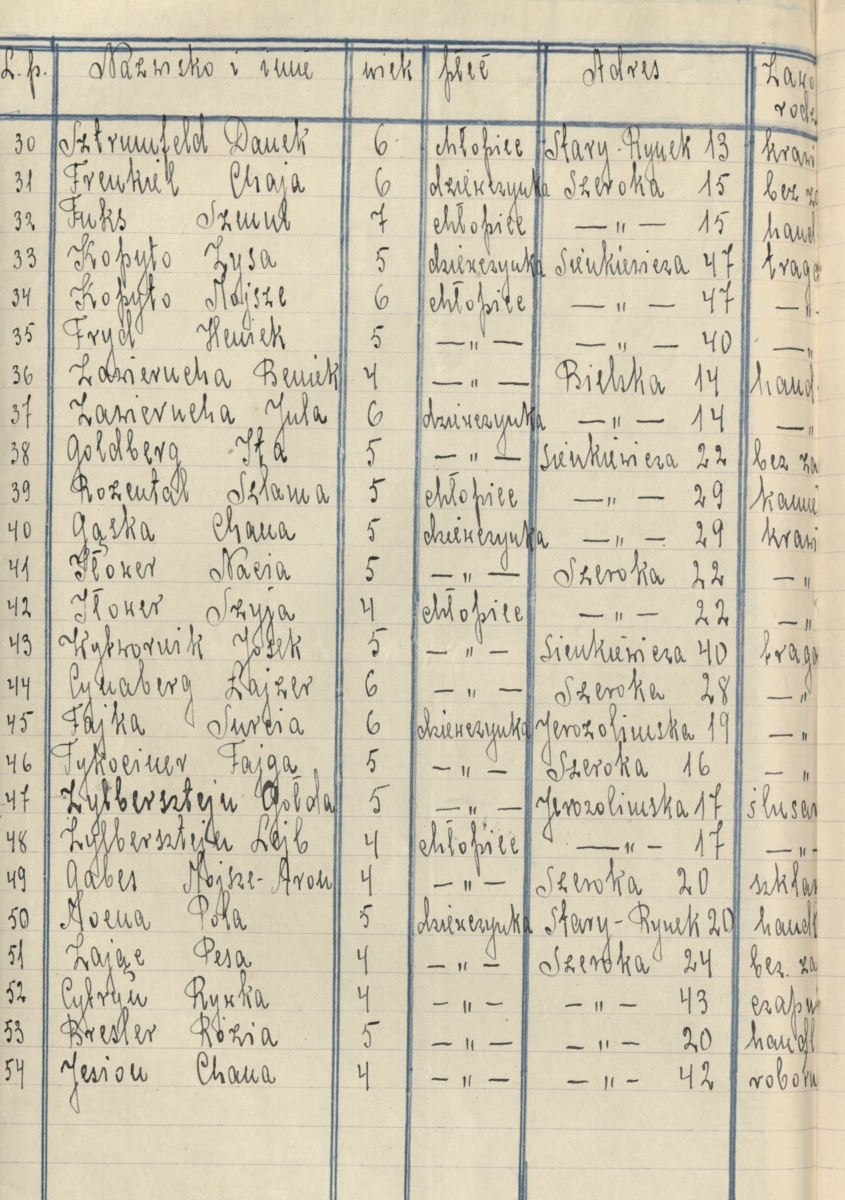 L.p. Nazwisko i imię wiek płeć Adres Zawo
rodz
30 Sztrumfeld Danek 6 chłopiec Stary-Rynek 13 krawi
31 Frenkiel Chaja 6 dziewczynka Szeroka 15 bez za
32 Fuks Szmul 7 chłopiec —„— 15 handl
33 Kopyto Zysa 5 dziewczynka Sienkiewicza 47 traga
34 Kopyto Mojsze 6 chłopiec —„— 47 —„
35 Fryd Heniek 5 —„— —„— 40 —„
36 Zawierucha Beniek 4 —„— Bielska 14 handl
37 Zawierucha Jula 6 dziewczynka —„— 14 —„
38 Goldberg Ita 5 —„— Sienkiewicza 22 bez za
39 Rozental Szlama 5 chłopiec —„— 29 kamie
40 Gąska Chana 5 dziewczynka —„— 29 krawi
41 Nacia 5 —„— Szeroka 22 —„
42 Szyja 4 chłopiec —„— 22 —„
43 Josek 5 —„— Sienkiewicza 40 traga
44 Cynaberg Lajzer 6 —„— Szeroka 28 —„
45 Fajka Surcia 6 dziewczynka Jerozolimska 19 —„
46 Tykociner Fajga 5 —„— Szeroka 16 —„
47 Zylbersztejn Gołda 5 —„— Jerozolimska 17 ślusar
48 Zylbersztejn Lejb 4 chłopiec —„— 17 —„-
49 Gabes Mojsze-Aron 4 —„— Szeroka 20 szklar
50 Pola 5 dziewczynka Stary-Rynek 20 handl
51 Zając Pesa 4 —„— Szeroka 24 bez. za
52 Cytryn Rywka 4 —„— —„— 43 czapni
53 Bresler Rózia 5 —„— —„— 20 handl
54 Jesion Chana 4 —„— —„— 42 robotn